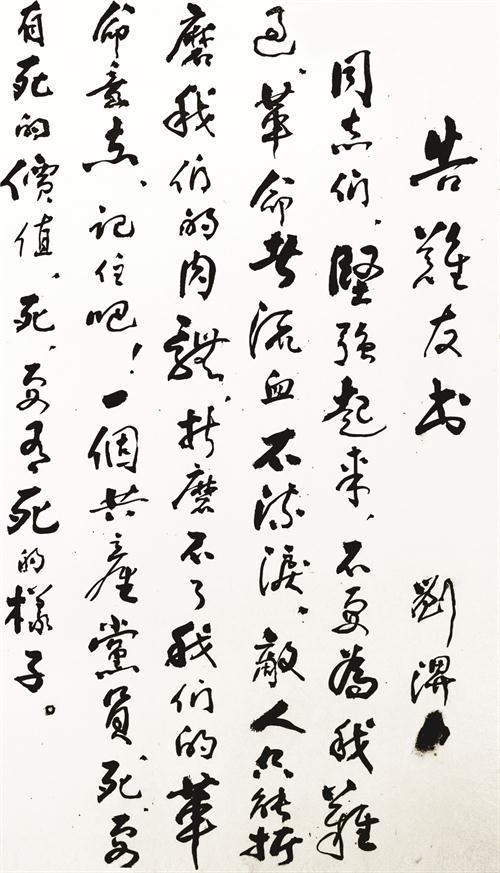 告難友书 劉
同志们，堅強起来，不要為我難
过，革命者流血不流淚，敵人只能折
磨我们的肉體，折磨不了我们的革
命意志，记住吧！一個共産黨員，死，要
有死的價值，死，要有死的樣子。